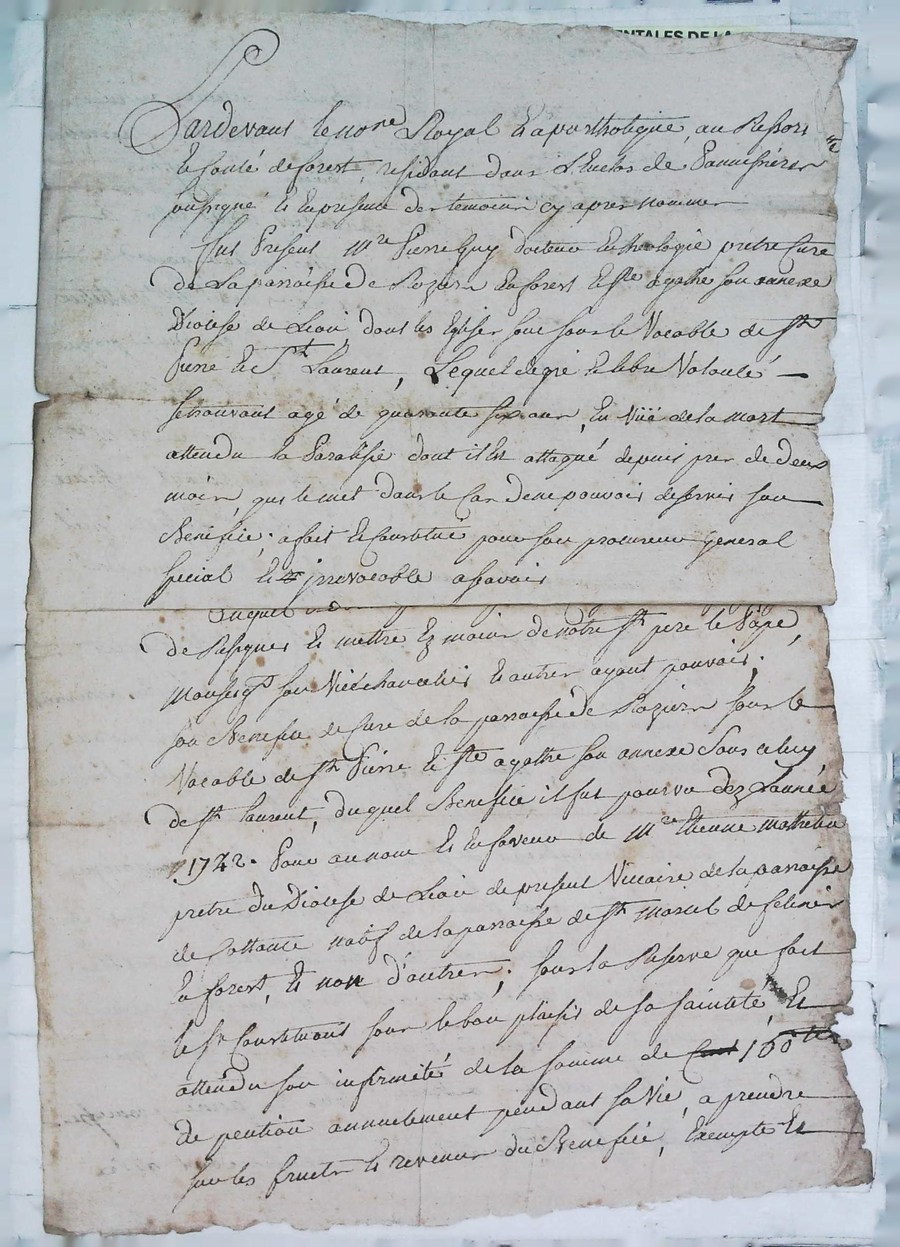 ENTALES DE LA
Pardevant le no.re Royal et apostholique, au Ressort
et comté de forest, residant dans L'Enclos de
soussigné et en presence des temoins cy apres nommes
fut Present M.re Pierre Guy docteur en theologie pretre Curé
de La parroisse de Roziers en forest et s.te agathe son annexe
Diocese de Lion dont les Eglises sont sous le Vocable de s.t
Pierre et s.t Laurent, Lequel de gré et libre Volonté
se trouvant agé de quarante six ans, En Vüe de la mort
attendu la Paralisie dont il Est attaqué depuis pres de deux
mois, qui le met dans le Cas de ne pouvoir deservir son
Benefice, a fait et Constitué pour son procureur general
special et irrevocable assavoir
Auquel
de Resigner et mettre Ez mains de notre s.t pere le Pape,
Monseig.r son Vicechancelier et autres ayant pouvoir,
son Benefice de Cure de la parroisse de Roziers sous le
Vocable de s.t Pierre et s.te agathe son annexe Sous celuy
de s.t laurent, duquel Benefice il fut pourvu dez L'année
1742. Pour au nom et en faveur de M.re Etienne
pretre du Diocese de Lion de present Vicaire de la parroisse
de Cottance natif de la parroisse de s.t Marcel de felines
En forest, et non d'autres; sous la Reserve que fait
le s.r Constituant sous le bon plaisir de sa sainteté, Et
attendu son infirmité de la somme de 150
de pention annuelement pendant sa Vie, a prendre
sur les fruits et revenus du Benefice, Exempte Et